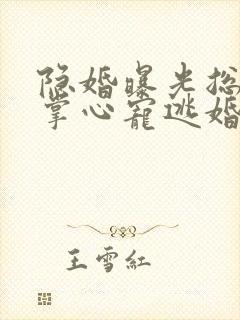 隐婚曝光总
掌心宠逃婚
王雪红